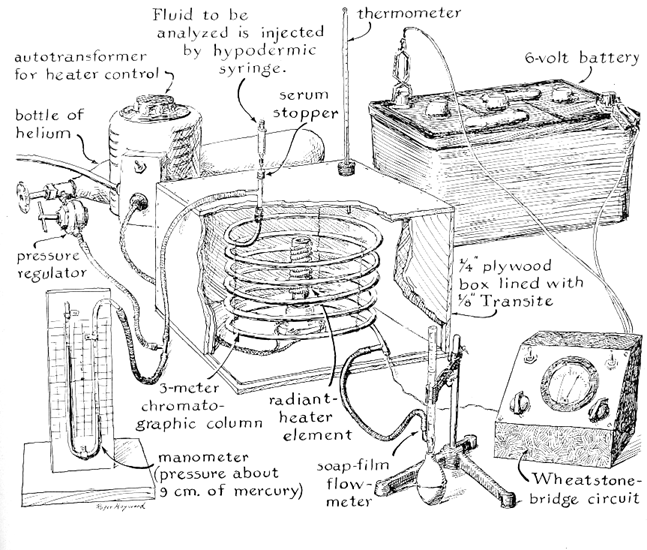 Fluid to be
analyzed is injected
by hypodermic
syringe.
thermometer
autotransformer
for heater control
6-volt battery
serum
stopper
bottle of
helium
pressure
regulator
1/4" plywood
box lined with
1/8" Transite
3-meter
chromato-
graphic column
radiant-
heater
element
manometer
(pressure about
9 cm. of mercury)
soap-film
flow-
meter
Wheatstone-
bridge circuit
Roger Hayward